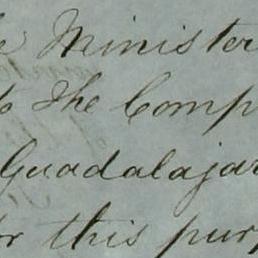 e Minister
to the Comp
Guadalajar
or this purp